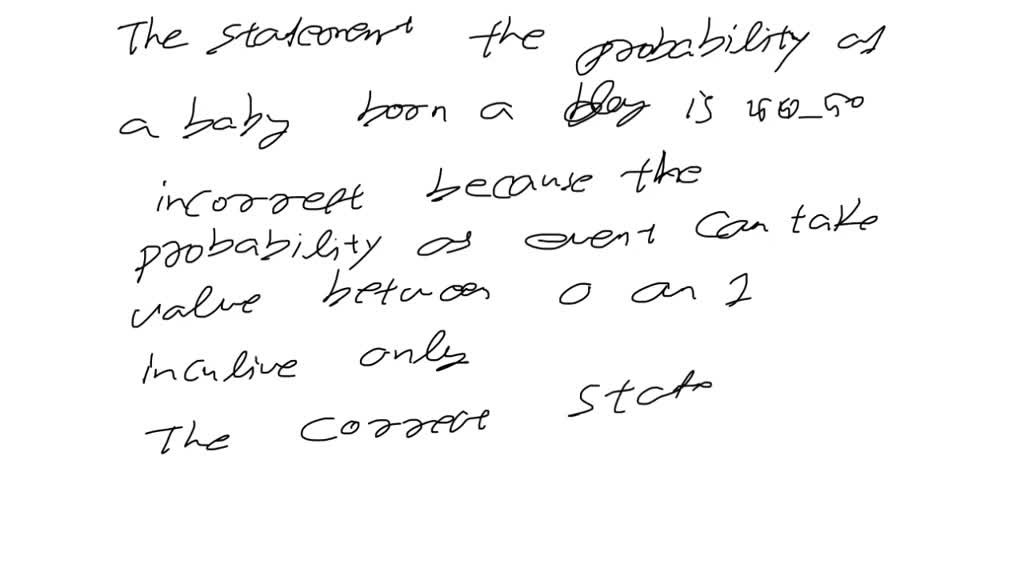 The statement the probability of
a baby born a boy is 50-50
incorrect because the
probability of event can take
value between 0 an 1
inculive only
The correct state